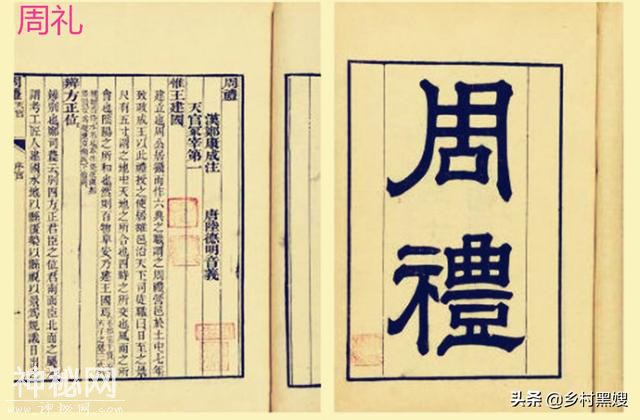 周礼
周禮
漢鄭康成注 唐陸德明音義
天官冢宰第一
惟王建國
建立也周公居攝而作六典之職謂之周禮營邑於土中七年
致政成王以此禮授之使居雒邑治天下司徒職曰日至之景
尺有五寸謂之地中天地之所合也四時之所交也風雨之所
會也陰陽之所和也然則百物阜安乃建王國焉
辨方正位
辨別也鄭司農云別四方正君臣之位君南面臣北面之屬
謂考工匠人建國水地以縣置槷以縣眡以景爲規識日出
周禮 天官 序官
周禮
神秘网
头条 @乡村黑嫂